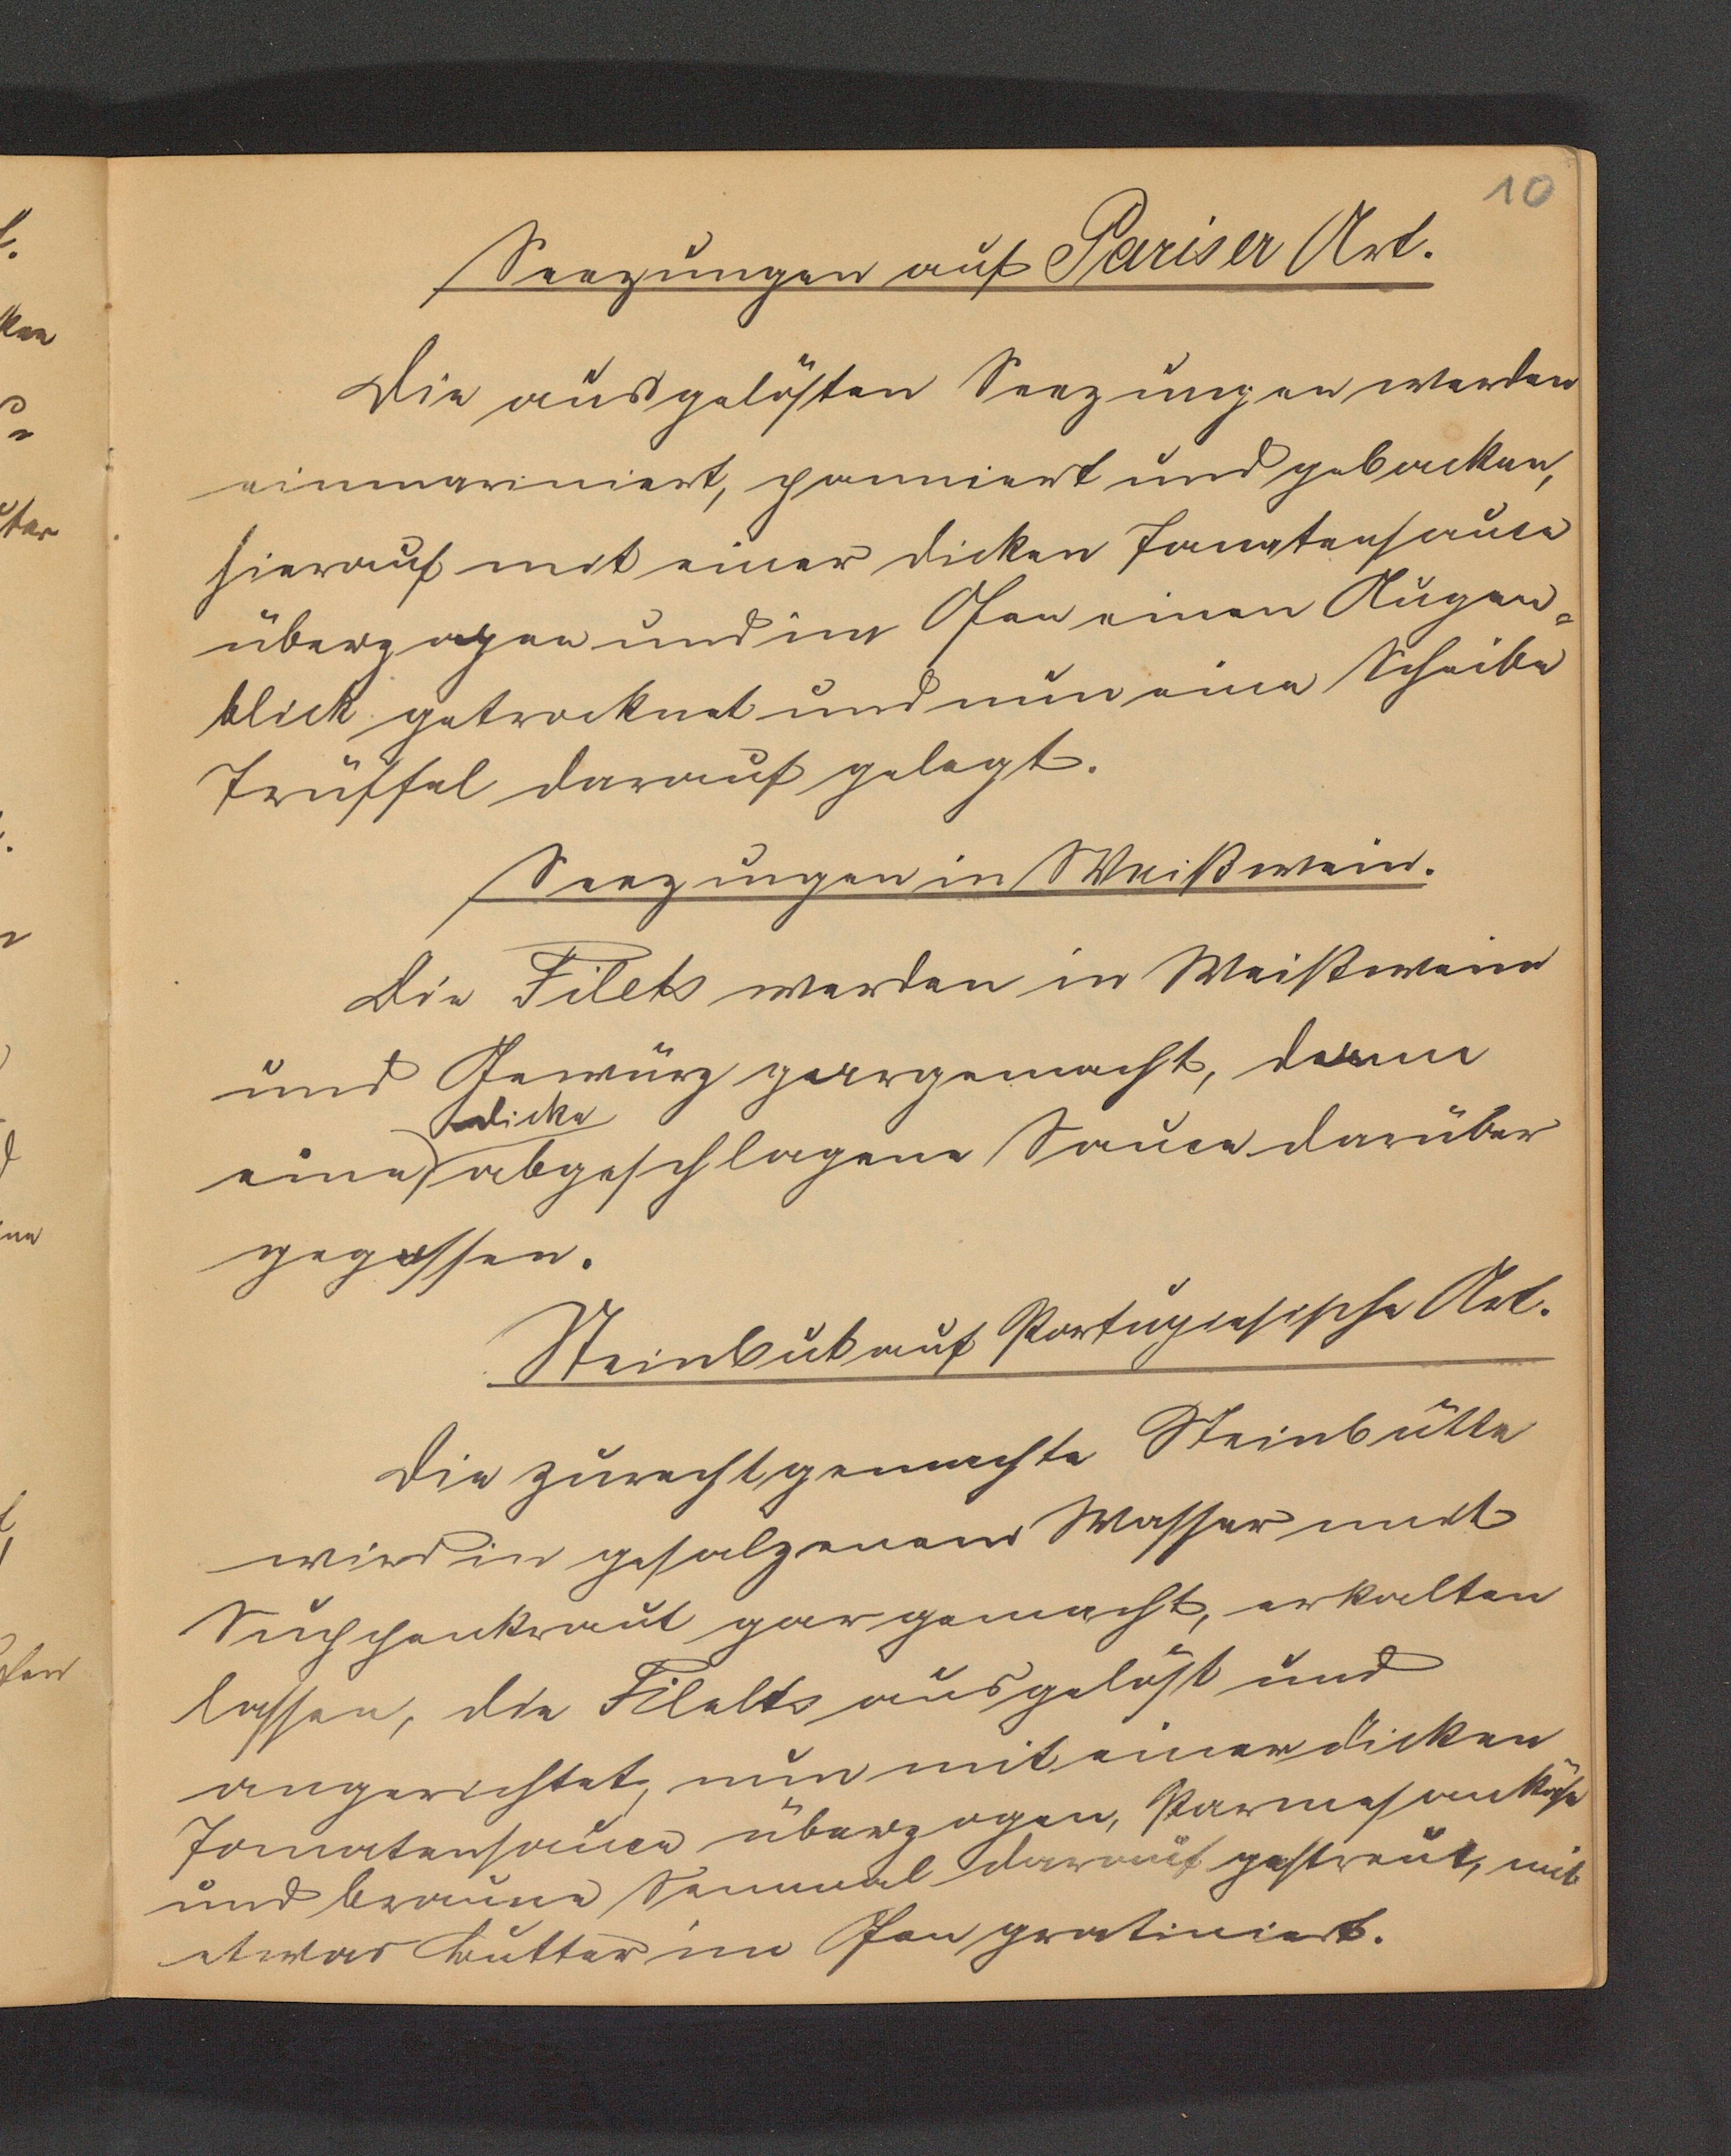 10
Seezungen auf Pariser Art.
Die ausgelösten Seezungen werden
einmariniert, panniert und gebacken,
hierauf mit einer dicken Tomatensauce
überzogen und im Ofen einen Augen=
blick getrocknet und nun eine Scheibe
Trüffel darauf gelegt.
Seezungen in Weißwein.
Die Filets werden in Weißwein
und Gewürz gargemacht, dann
dicke
eine abgeschlagene Sauce darüber
gegossen.
Steinbut auf Portugiesische Art.
Die zurechtgemachte Steinbütte
wird in gesalzenem Wasser mit
Suppenkraut gar gemacht, erkalten
lassen, die Filets ausgelöst und
angerichtet, nun mit einer dicken
Tomatensauce überzogen, Parmesankäse
und braune Semmel darauf gestreut, mit
etwas Butter im Ofen gratiniert.